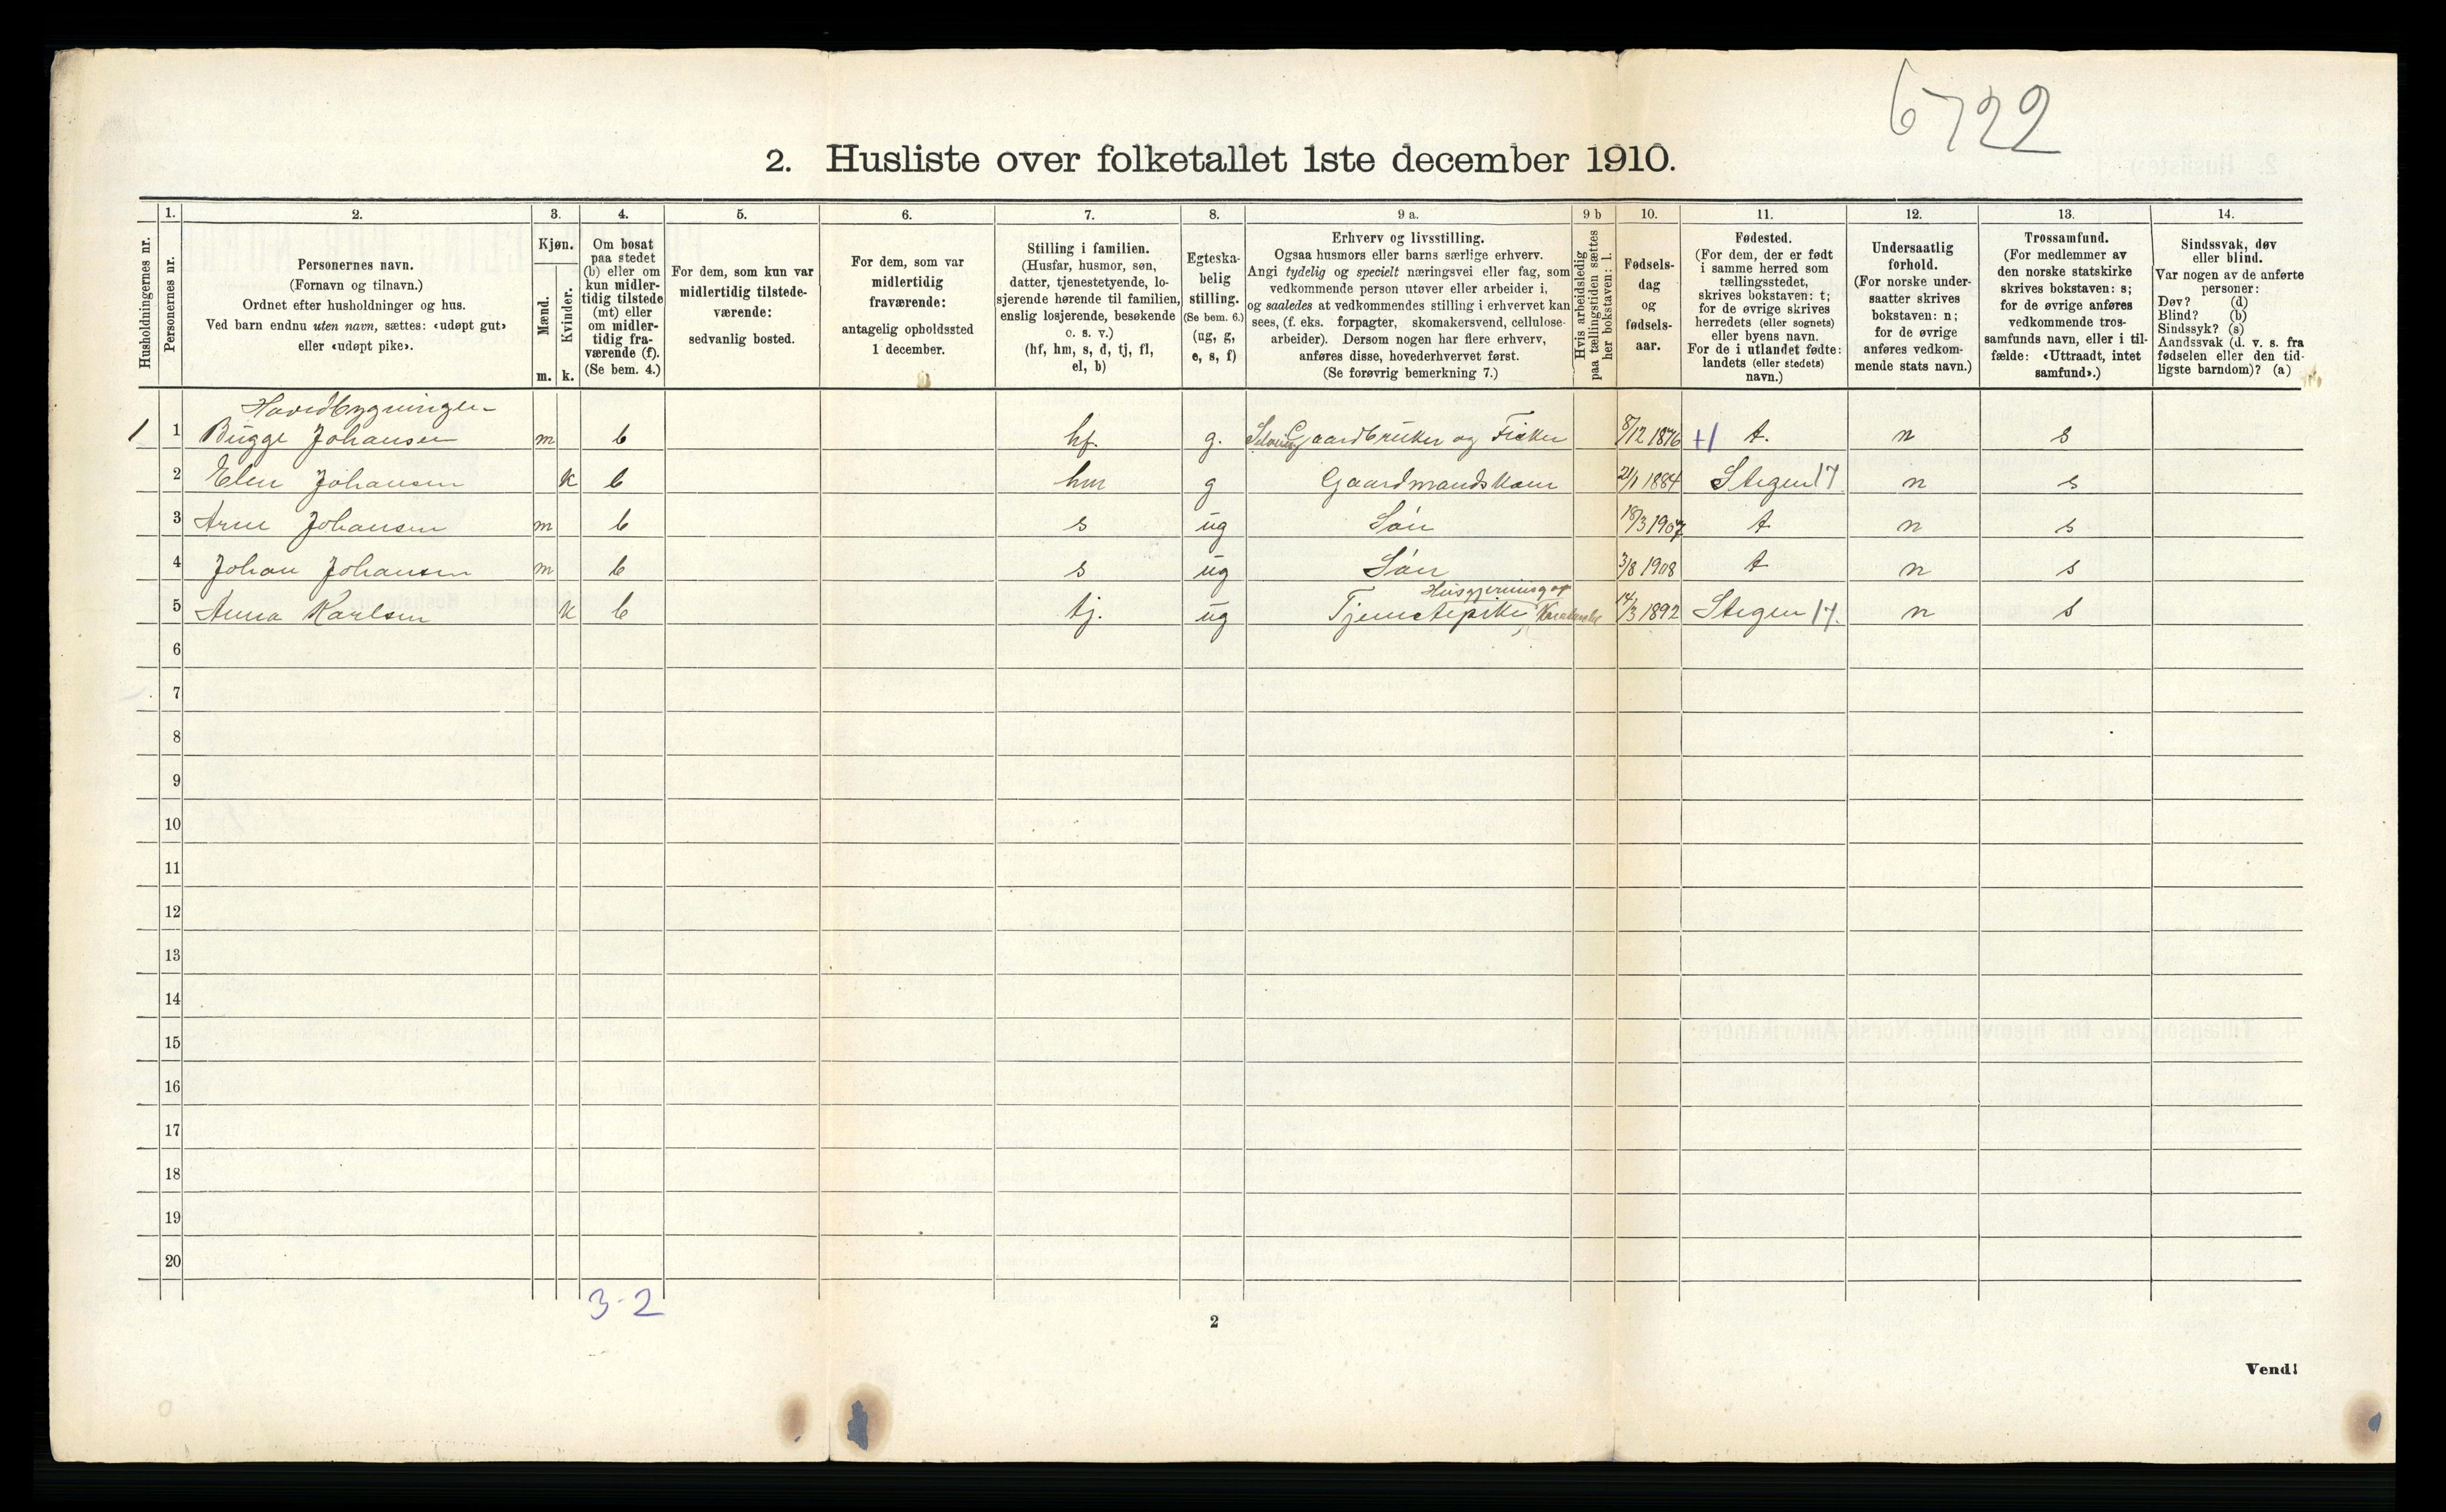 6722
2. Husliste over folketallet 1ste december 1910.
Husholdningernes nr.
1. Personernes nr.
2. Personernes navn.
(Fornavn og tilnavn.)
Ordnet efter husholdninger og hus.
Ved barn endnu uten navn, sættes: «udøpt gut»
eller «udøpt pike».
3. Kjøn.
Mænd. m.
Kvinder. k.
4. Om bosat
paa stedet
(b) eller om
kun midler-
tidig tilstede
(mt) eller
om midler-
tidig fra-
værende (f).
(Se bem. 4.)
5. For dem, som kun var
midlertidig tilstede-
værende:
sedvanlig bosted.
6. For dem, som var
midlertidig
fraværende:
antagelig opholdssted
1 december.
7. Stilling i familien.
(Husfar, husmor, søn,
datter, tjenestetyende, lo-
sjerende hørende til familien,
enslig losjerende, besøkende
o. s. v.)
(hf, hm, s, d, tj, fl,
el, b)
8. Egteska-
belig
stilling.
(Se bem. 6.)
(ug, g,
e, s, f)
9 a. Erhverv og livsstilling.
Ogsaa husmors eller barns særlige erhverv.
Angi tydelig og specielt næringsvei eller fag, som
vedkommende person utøver eller arbeider i,
og saaledes at vedkommendes stilling i erhvervet kan
sees, (f. eks. forpagter, skomakersvend, cellulose-
arbeider). Dersom nogen har flere erhverv,
anføres disse, hovederhvervet først.
(Se forøvrig bemerkning 7.)
9 b Hvis arbeidsledig
paa tællingstiden sættes
her bokstaven: l.
10. Fødsels-
dag
og
fødsels-
aar.
11. Fødested.
(For dem, der er født
i samme herred som
tællingsstedet,
skrives bokstaven: t;
for de øvrige skrives
herredets (eller sognets)
eller byens navn.
For de i utlandet fødte:
landets (eller stedets)
navn.)
12. Undersaatlig
forhold.
(For norske under-
saatter skrives
bokstaven: n;
for de øvrige
anføres vedkom-
mende stats navn.)
13. Trossamfund.
(For medlemmer av
den norske statskirke
skrives bokstaven: s;
for de øvrige anføres
vedkommende tros-
samfunds navn, eller i til-
fælde: «Uttraadt, intet
samfund».)
14. Sindssvak, døv
eller blind.
Var nogen av de anførte
personer:
Døv? (d)
Blind? (b)
Sindssyk? (s)
Aandssvak (d. v. s. fra
fødselen eller den tid-
ligste barndom)? (a)
Hovedbygningen
1 1 Bugge Johansen m b hf. g. Gaardbruker og Fisker 8/12 1876 t. n s
2 Elen Johansen k b hm g Gaardmandskone 21/1 1884 Stegen 17 n s
3 Arne Johansen m b s ug Søn 18/3 1907 t n s
4 Johan Johansen m b s ug Søn 3/8 1908 t n s
Husgjerning og
5 Anna Karlsen k b tj. ug Tjenestepike 14/3 1892 Stegen 17. n s
6
7
8
9
10
11
12
13
14
15
16
17
18
19
20
3-2
2
Vend!